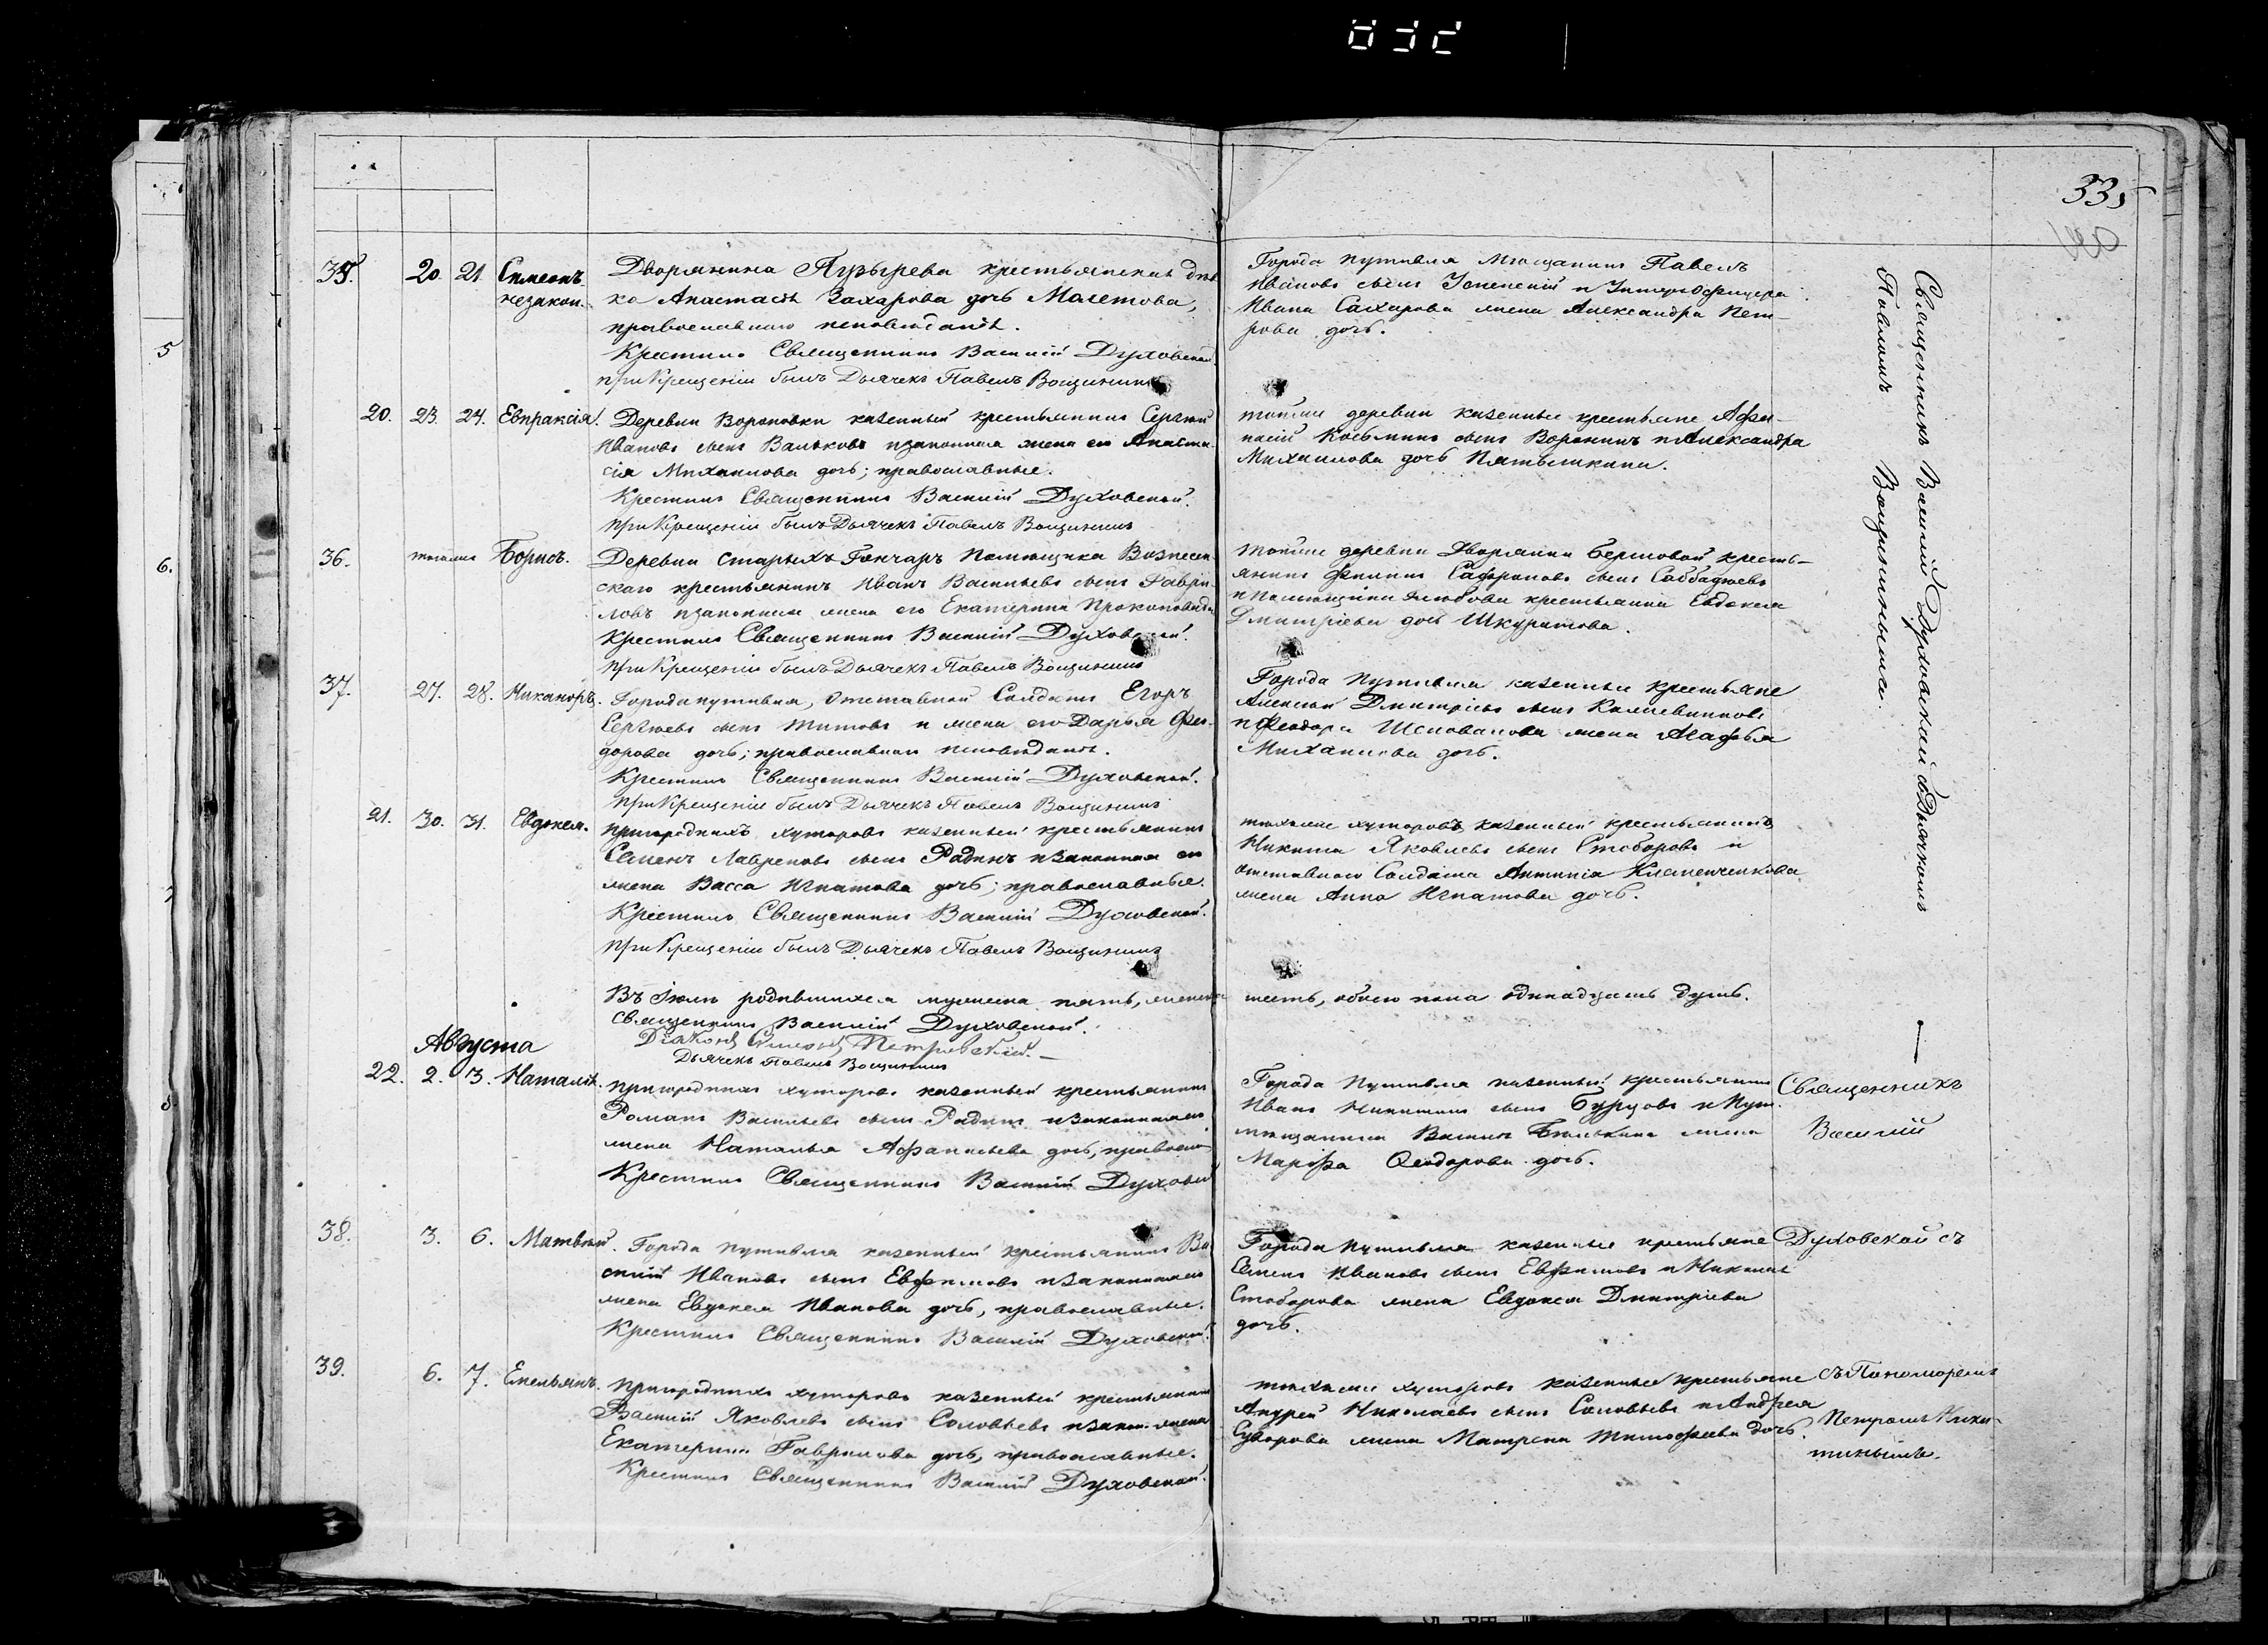 335
35. 20. 21 Симеонъ незакон.
Дворянина Пузырева крестьянская дѣв
ка Анастасія Захарова дочь
православнаго исповѣданія.
Крестилъ Священникъ Василій Духовской.
при Крещеніи былъ Дьячекъ Павелъ Вощининъ
Города Путивля Мѣщанинъ Павелъ
Ивановъ сынъ и Унтеръ Офицера
Ивана Сахарова жена Александра Пет-
рова дочь.
20. 23. 24. Евпраксія.
Деревни Вороновки казенный крестьянинъ Сергѣй
Ивановъ сынъ Вальковъ и законная жена его Анаста-
сія Михаилова дочь; православные.
Крестилъ Священникъ Василій Духовской.
при Крещеніи былъ Дьячекъ Павелъ Вощининъ
тойже деревни казенные крестьяне Афа-
насій Косьминъ сынъ Воронинъ и Александра
Михаилова дочь
36. тогоже Борисъ.
Деревни Старыхъ Гончаръ Помѣщика Вознесен-
скаго крестьянинъ Иванъ Васильевъ сынъ Гаври-
ловъ и законная жена его Екатерина Прокопова
Крестилъ Священникъ Василій Духовской.
при Крещеніи былъ Дьячекъ Павелъ Вощининъ
тойже деревни Дворянки кресть-
янинъ Филипъ Сафроновъ сынъ
и Помѣщика крестьянка Евдокія
Дмитріева дочь Шкуратова.
37. 27. 28. Никаноръ.
Города Путивля, Отставной Солдатъ Егоръ
Сергѣевъ сынъ Титовъ и жена его Дарья Фео-
дорова дочь; православнаго исповѣданія.
Крестилъ Священникъ Василій Духовской.
при Крещеніи былъ Дьячекъ Павелъ Вощининъ
Города Путивля казенные крестьяне
Алексѣй Дмитріевъ сынъ
и Феодора Шеповалова жена Агафья
Михаилова дочь.
21. 30. 31. Евдокія.
Пригородныхъ хуторовъ казенный крестьянинъ
Семенъ Лавреновъ сынъ Радинъ и законная его
жена Васса Игнатова дочь; православные.
Крестилъ Священникъ Василій Духовской.
при Крещеніи былъ Дьячекъ Павелъ Вощининъ
тѣхъже хуторовъ казенный крестьянинъ
Никита Яковлевъ сынъ Стоборовъ и
отставнаго Солдата Антипа
жена Анна Игнатова дочь.
Священникъ Василій Духовской съ Дьячкомъ
Павломъ Вощининымъ.
Въ Іюлѣ родившихся мужеска пять, женска шесть, обоего пола одинадцать душъ.
Священникъ Василій Духовской.
Діаконъ Симеонъ Петровскій.
Дьячекъ Павелъ Вощининъ
Августа
22. 2. 3. Наталія.
Пригородныхъ хуторовъ казенный крестьянинъ
Романъ Васильевъ сынъ Радинъ и законная его
жена Наталья Афанасьева дочь, правосл.
Крестилъ Священникъ Василій Духовской
Города Путивля казенный крестьянинъ
Иванъ Никитинъ сынъ Бурцовъ и Пут.
мѣщанина жена
Марфа Ѳеодорова дочь.
Священникъ
Василій
38. 3. 6. Матвѣй.
Города Путивля казенный крестьянинъ Ва
силій Ивановъ сынъ Евфимовъ и законная его
жена Евдокія Иванова дочь, православные.
Крестилъ Священникъ Василій Духовской.
Города Путивля казенные крестьяне
Семенъ Ивановъ сынъ Евфимовъ и Николая
Стоборова жена Евдокія Дмитріева
дочь.
Духовской съ
39. 6. 7. Емельянъ.
Пригородныхъ хуторовъ казенный крестьянинъ
Василій Яковлевъ сынъ Соловьевъ и закон. жена
Екатерина Гаврилова дочь, православные.
Крестилъ Священникъ Василій Духовской.
тѣхъже хуторовъ казенные крестьяне
Андрей Николаевъ сынъ Соловьевъ и Андрея
Суворова жена Матрена Тимофеева дочь.
съ Пономоремъ
Петромъ Ники-
тинымъ.